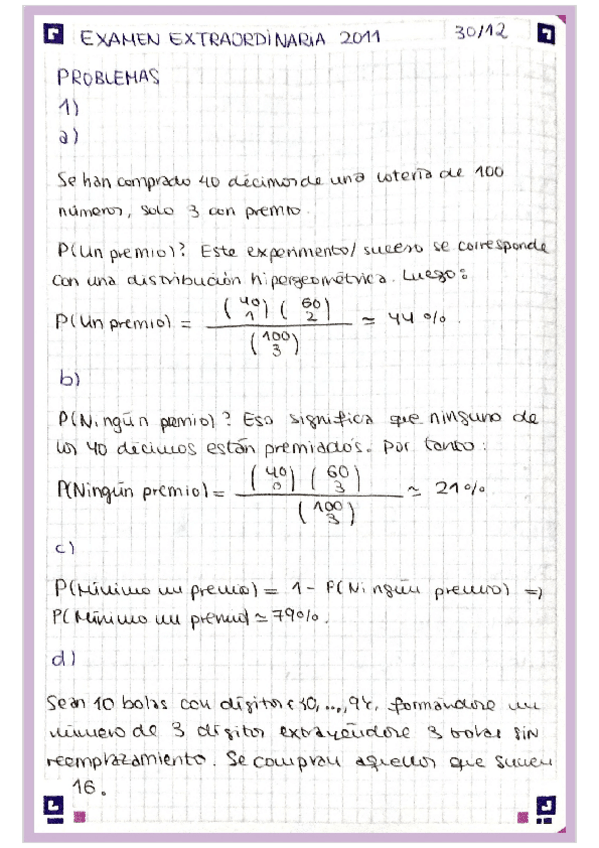 EXAMEN EXTRAORDINARIA 2011 30/12
PROBLEMAS
1)
a)
Se han comprado 40 décimos de una lotería de 100
números, solo 3 con premio.
P(Un premio)? Este experimento/suceso se corresponde
con una distribución hipergeométrica. Luego:
P(Un premio) = (40 1) (60 2) / (100 3) ≃ 44 %.
b)
P(Ningún premio)? Eso significa que ninguno de
los 40 décimos están premiados. Por tanto:
P(Ningún premio) = (40 0) (60 3) / (100 3) ≃ 21%.
c)
P(Mínimo un premio) = 1 - P(Ningún premio) =>
P(Mínimo un premio) ≃ 79%.
d)
Sean 10 bolas con dígitos {0,...,9}, formándose un
número de 3 dígitos extrayéndose 3 bolas sin
reemplazamiento. Se compran aquellos que sumen
16.